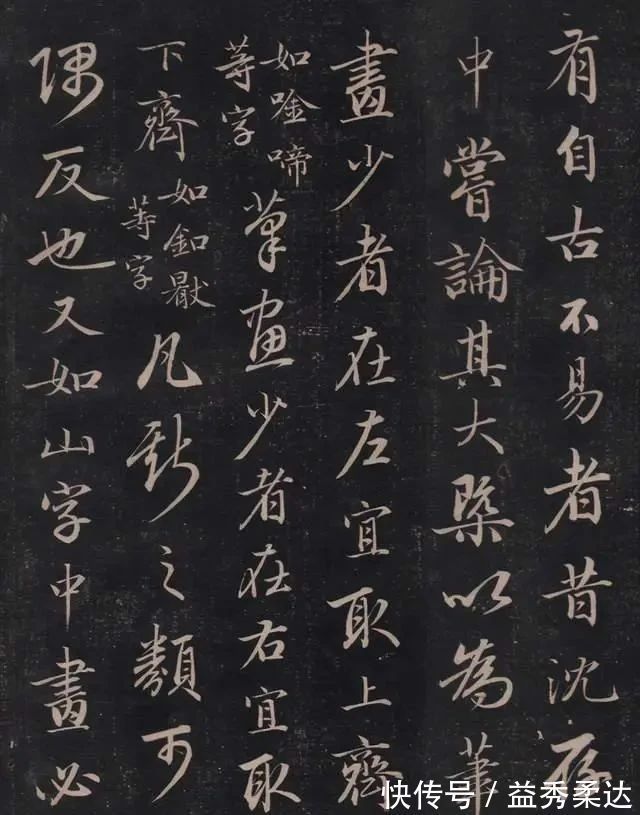 有自古不易者昔沈存
中嘗論其大槩以為筆
畫少者在左宜取上齊
如唫啼
等字
筆畫少者在右宜取
下齊
如釦
等字
凡之類可
隅反也又如山字中畫必
快传号/益秀柔达